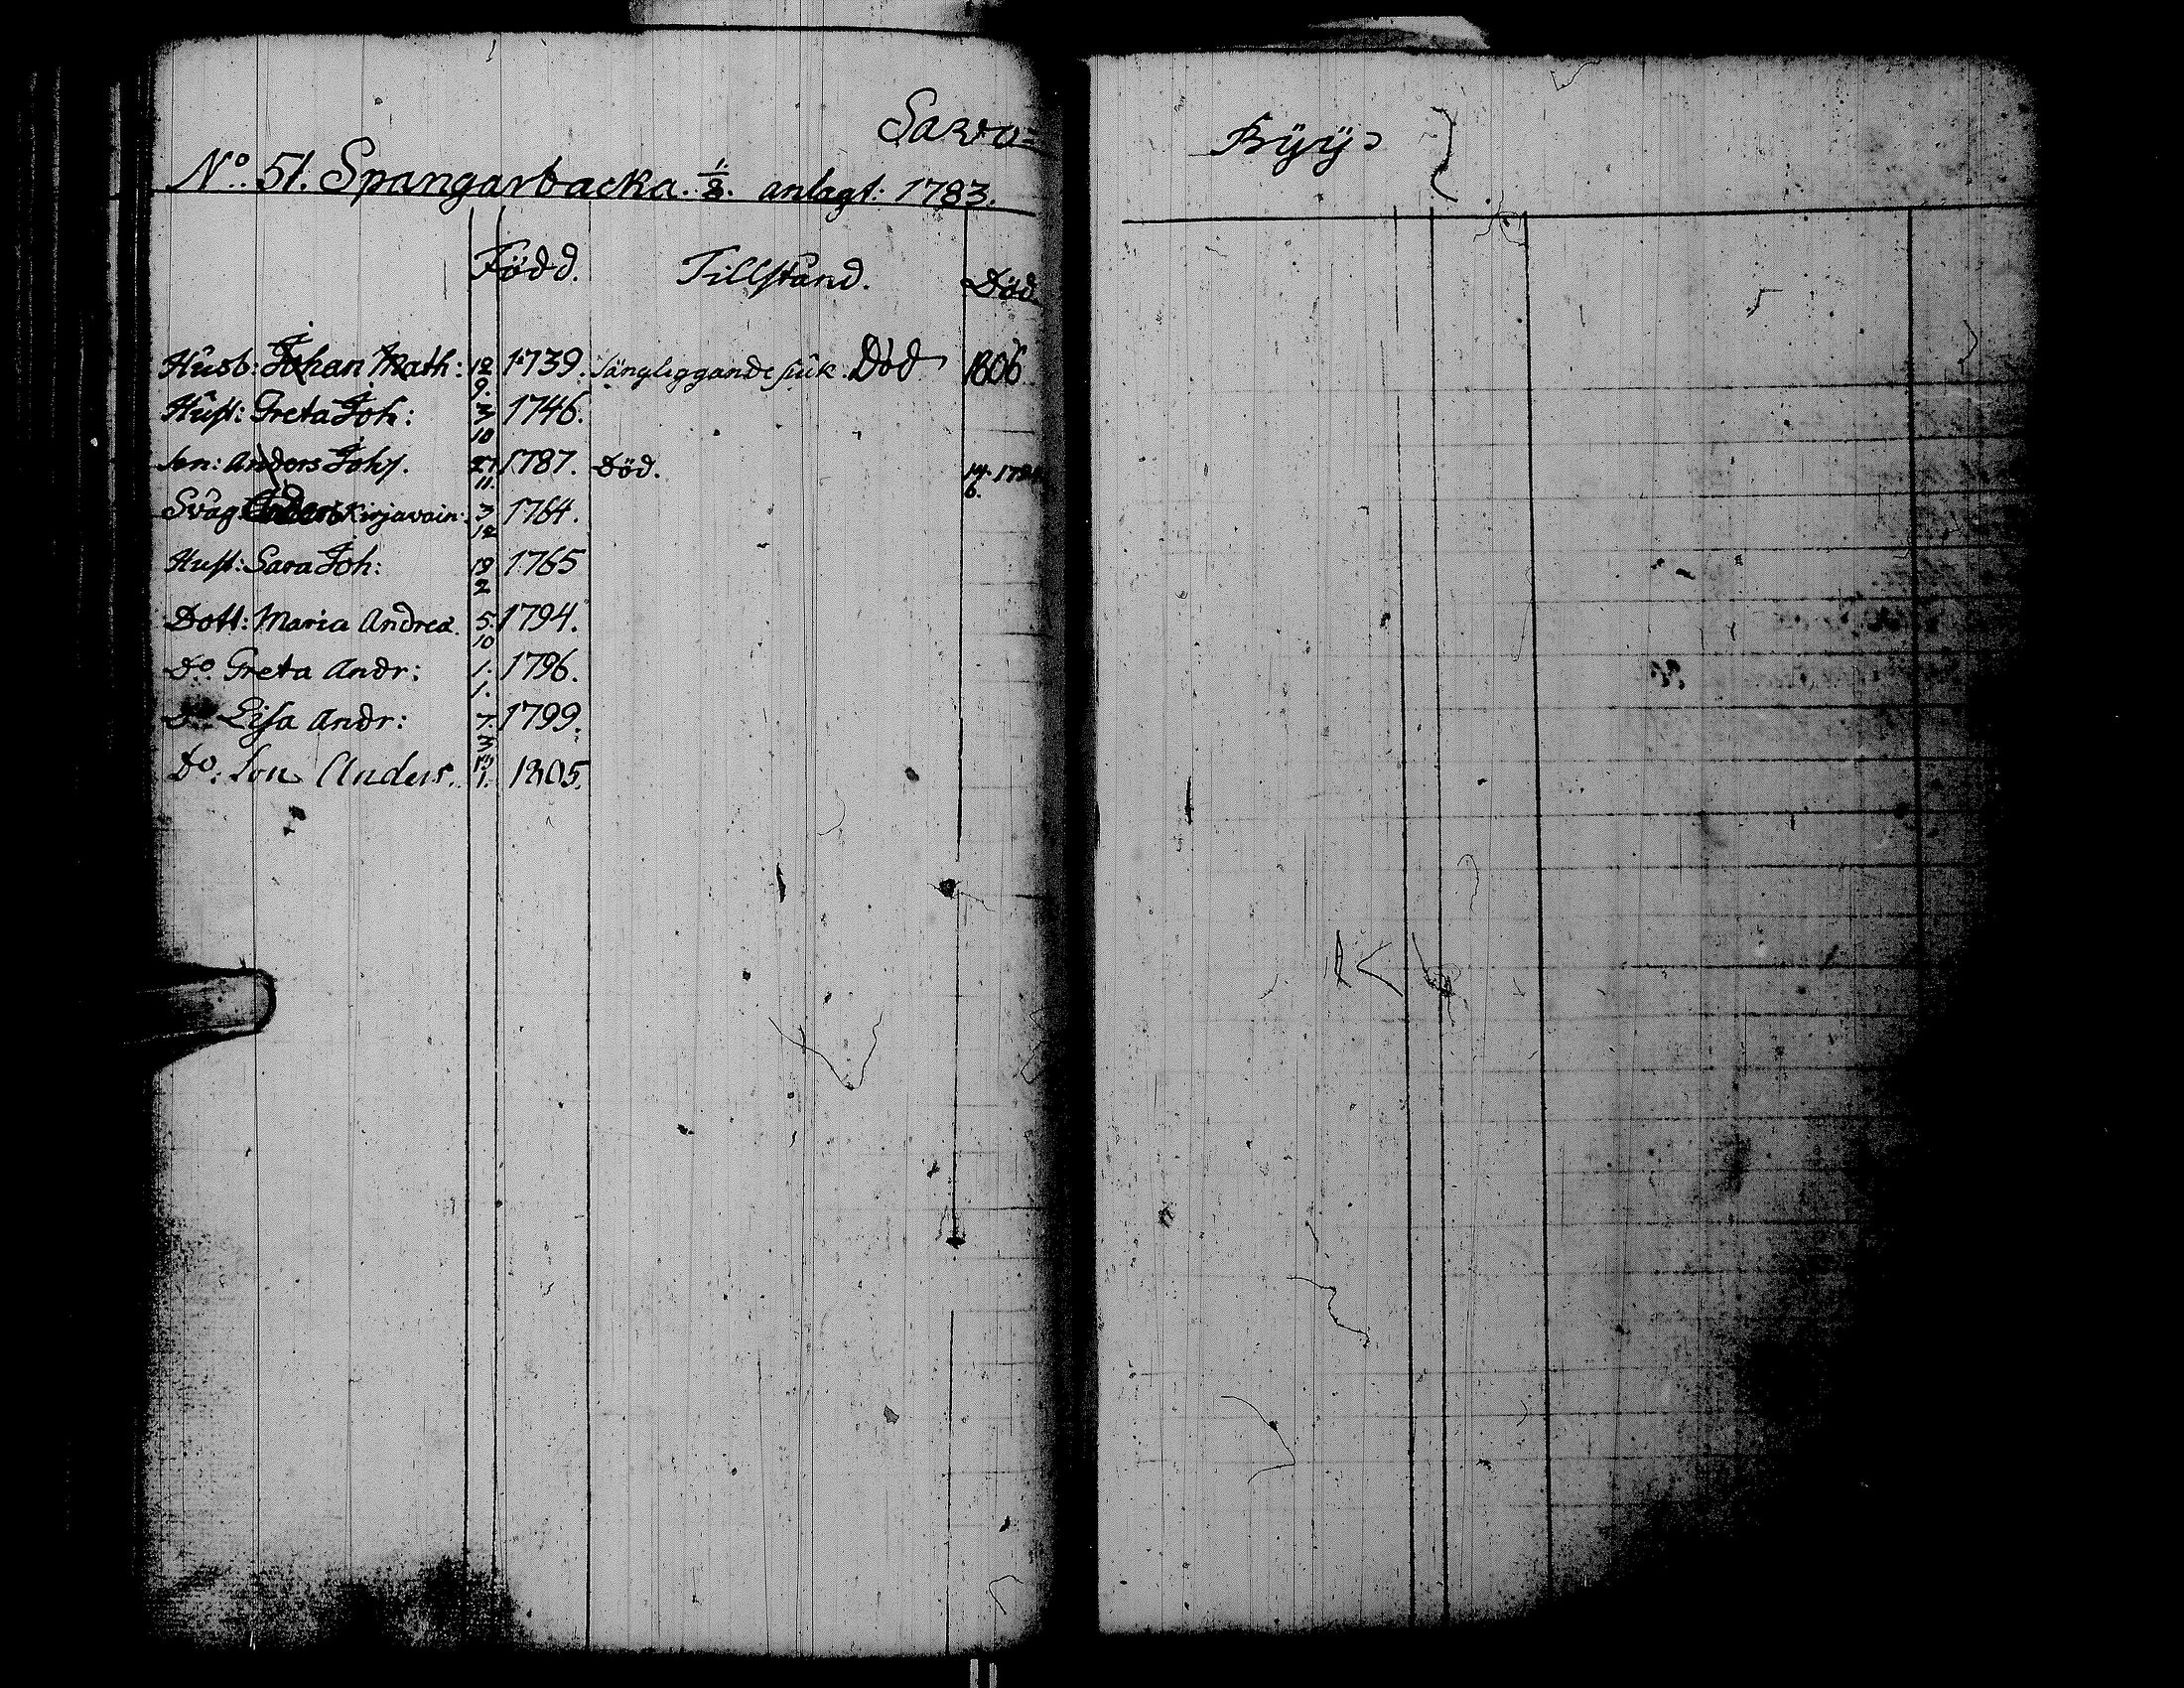 Savo=
Kyÿ
N.o 51. Spangarbacka. 1/8. anlagt: 1783.
Född. Tillstånd. Död
Husb: Johan Math: 12/9. 1739. sängliggande siuk. Död 1806
Hust: Greta Joh: 3/10 1746.
Son: Anders Johs. 27/11. 1787. Död. 14/6.
Svåg. Anders Kirjavain: 3/12 1764.
Hust: Sara Joh: 19/2 1765
Dott: Maria Andrea. 5./10 1794.
Do Greta Andr: 1./1. 1796.
Do Lisa Andr: 7./3 1799.
Do: Son Anders. 1805.